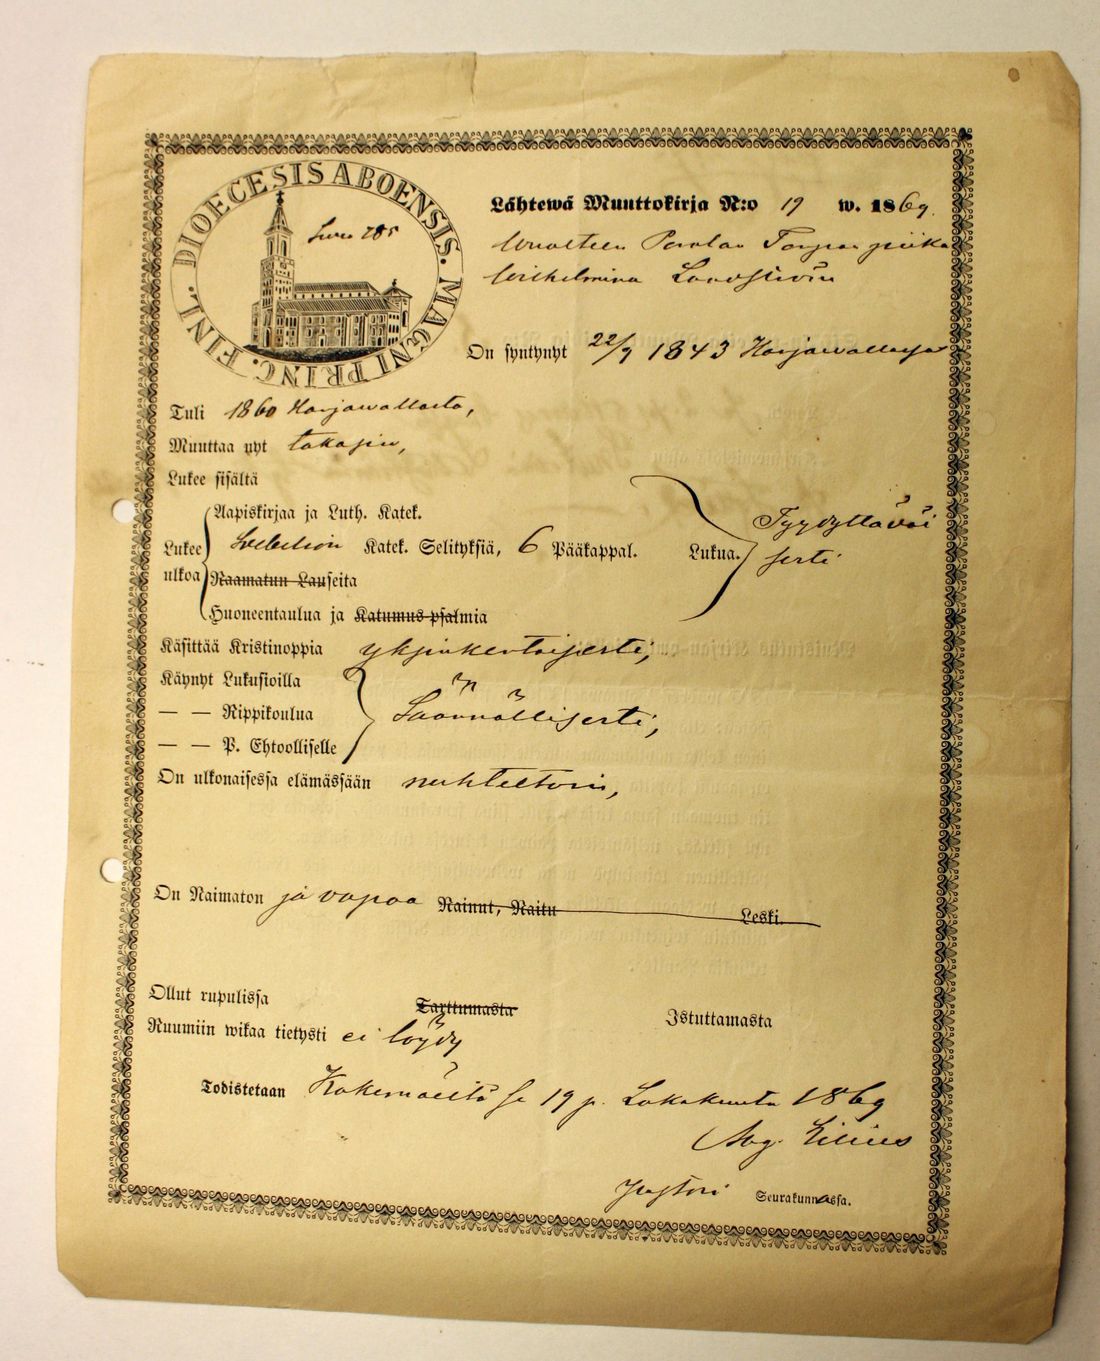 DIOECESIS ABOENSIS. MAGNI PRINC. FINL.
Lähtewä Muuttokirja N:o 19 w. 1869.
piika
Wilhelmina
On syntynyt 22/9 1843 Harjawallassa
Tuli 1860 Harjawallasta,
Muuttaa nyt takasin,
Lukee sisältä
Aapiskirjaa ja Luth. Katek.
Lukee ulkoa Svebelion Katek. Selityksiä, 6 Pääkappal. Lukua. Tyydyttäväi
sesti
Raamatun Lauseita
Huoneentaulua ja Katumus-psalmia
Käsittää Kristinoppia yksinkertaisesti,
Käynyt Lukusioilla
— — Rippikoulua Säännöllisesti,
— — P. Ehtoolliselle
On ulkonaisessa elämässään nuhteeton,
On Naimaton ja vapaa Nainut, Naitu Leski.
Ollut rupulissa Tarttumasta Istuttamasta
Ruumiin wikaa tietysti ei löydy
Todistetaan Kokemäellä se 19 p. Lokakuuta 1869
Lilius
Pastori Seurakunnassa.